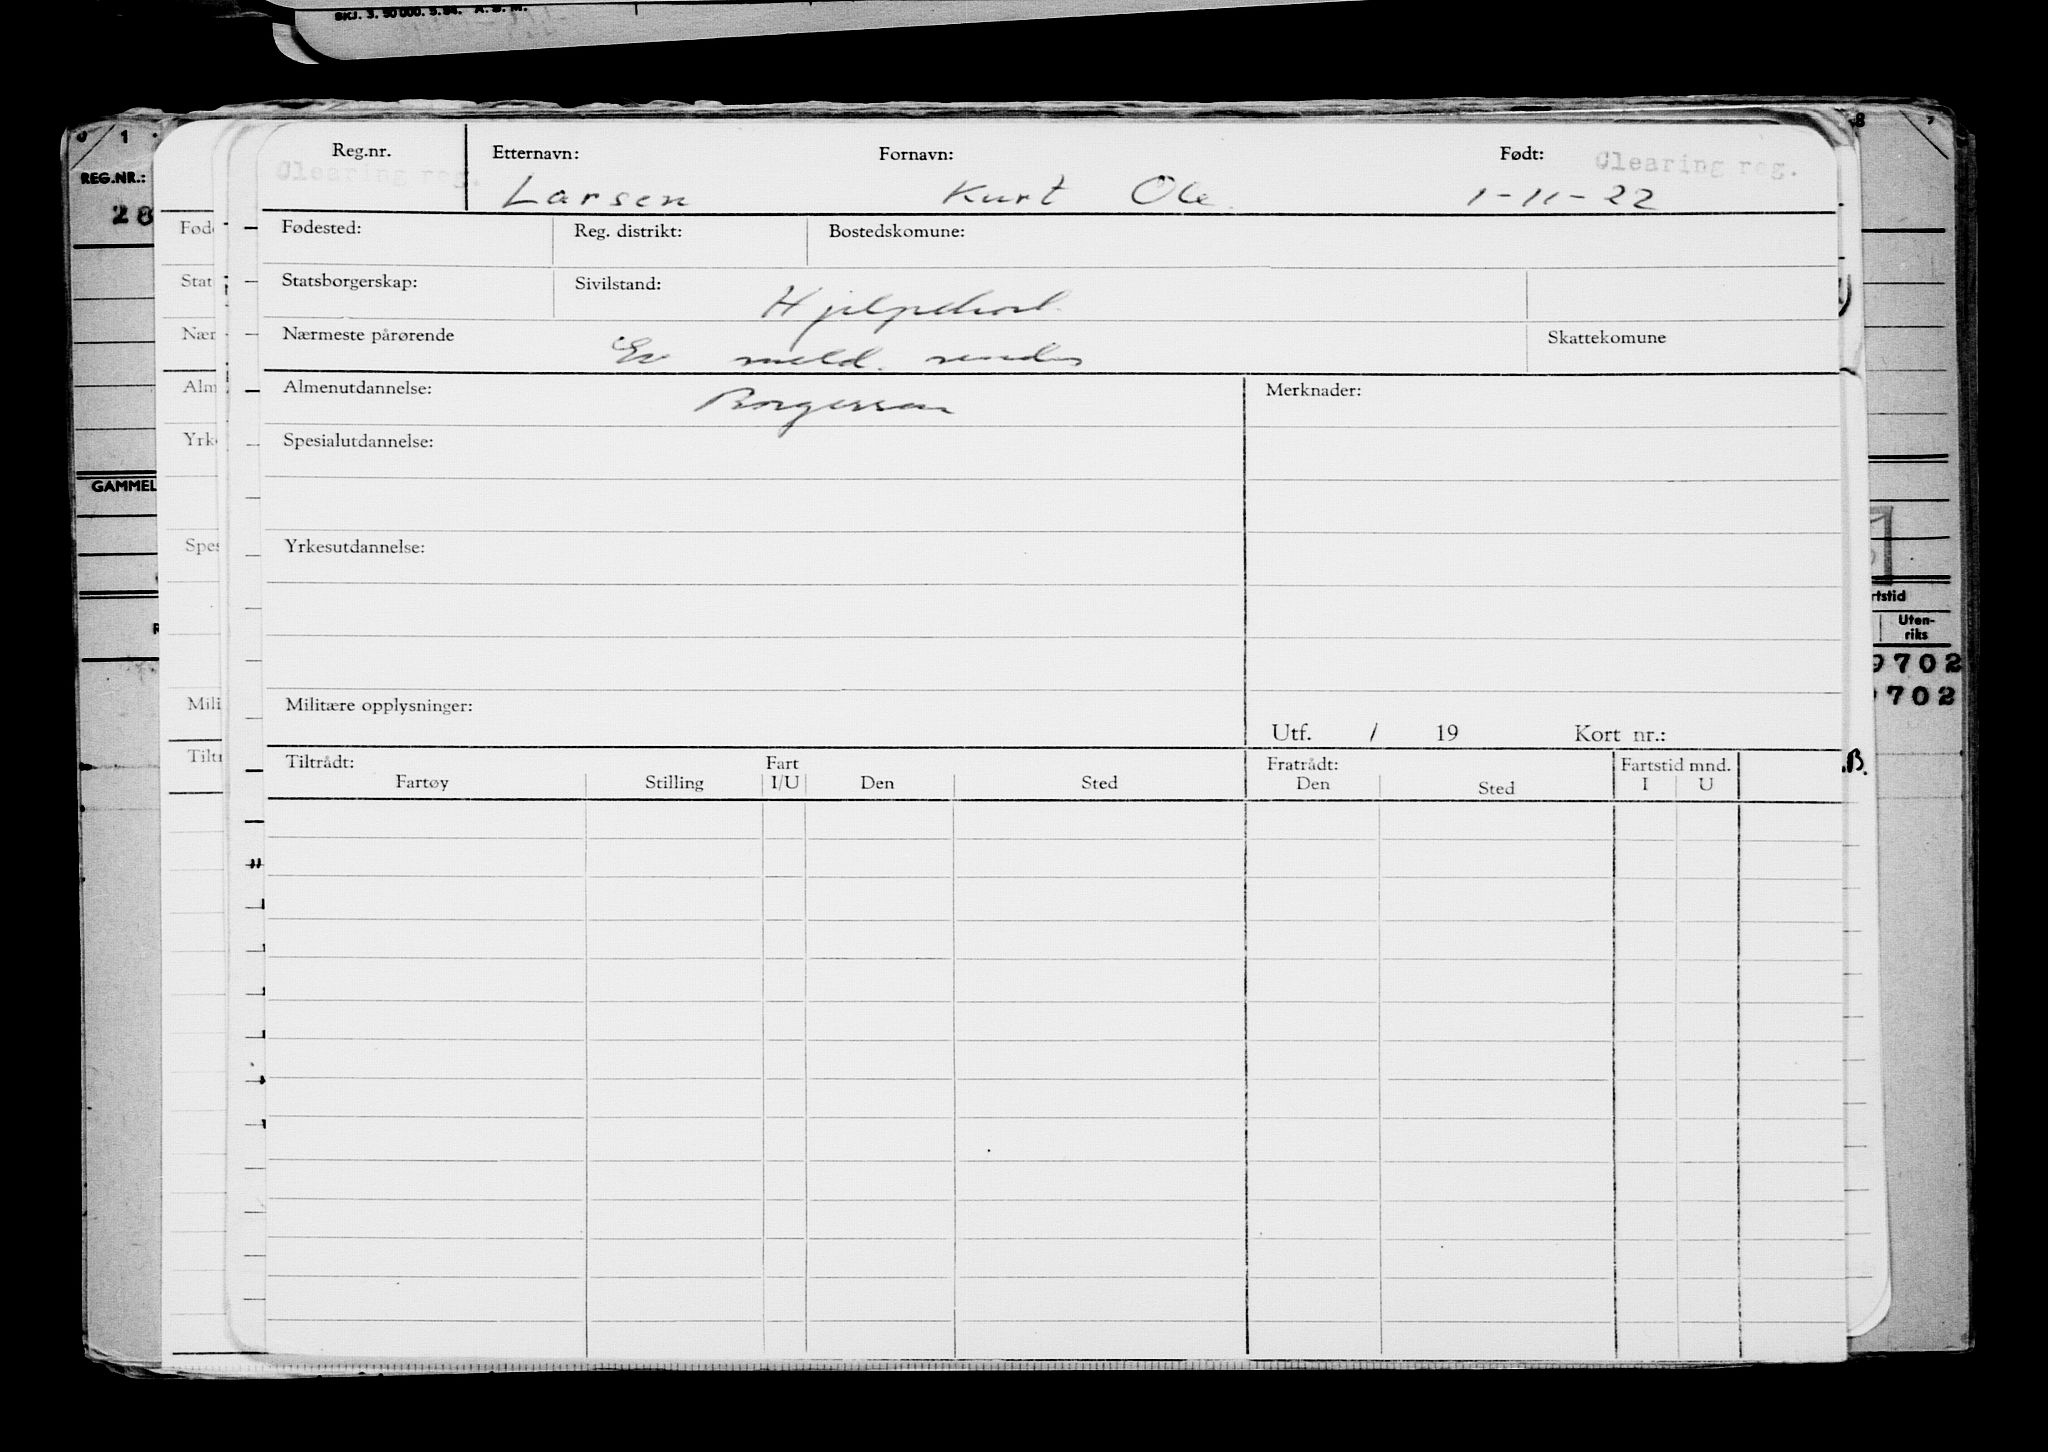 SKJ. 3. 50 000. 5. 64. A. B. M.
0 1 8
REG.NR.:
28
GAMMEL
Reg.nr. Etternavn: Fornavn: Født:
Clearing reg. Clearing reg.
Larsen Kurt Ole. 1-11-22
Fødested: Reg. distrikt: Bostedskomune:
Statsborgerskap: Sivilstand:
Hjelpekort.
Nærmeste pårørende Skattekomune
Ev meld. sendes
Almenutdannelse: Merknader:
Borgersen
Spesialutdannelse:
Yrkesutdannelse:
Militære opplysninger:
Utf. / 19 Kort nr.:
Tiltrådt: Fart Fratrådt: Fartstid mnd.
Fartøy Stilling I/U Den Sted Den Sted I U
Fød
Stat
Nær
Alm
Yrk
Spes
Mili
Tiltr
"
rtstid
Uten-
riks
9702
702
B.